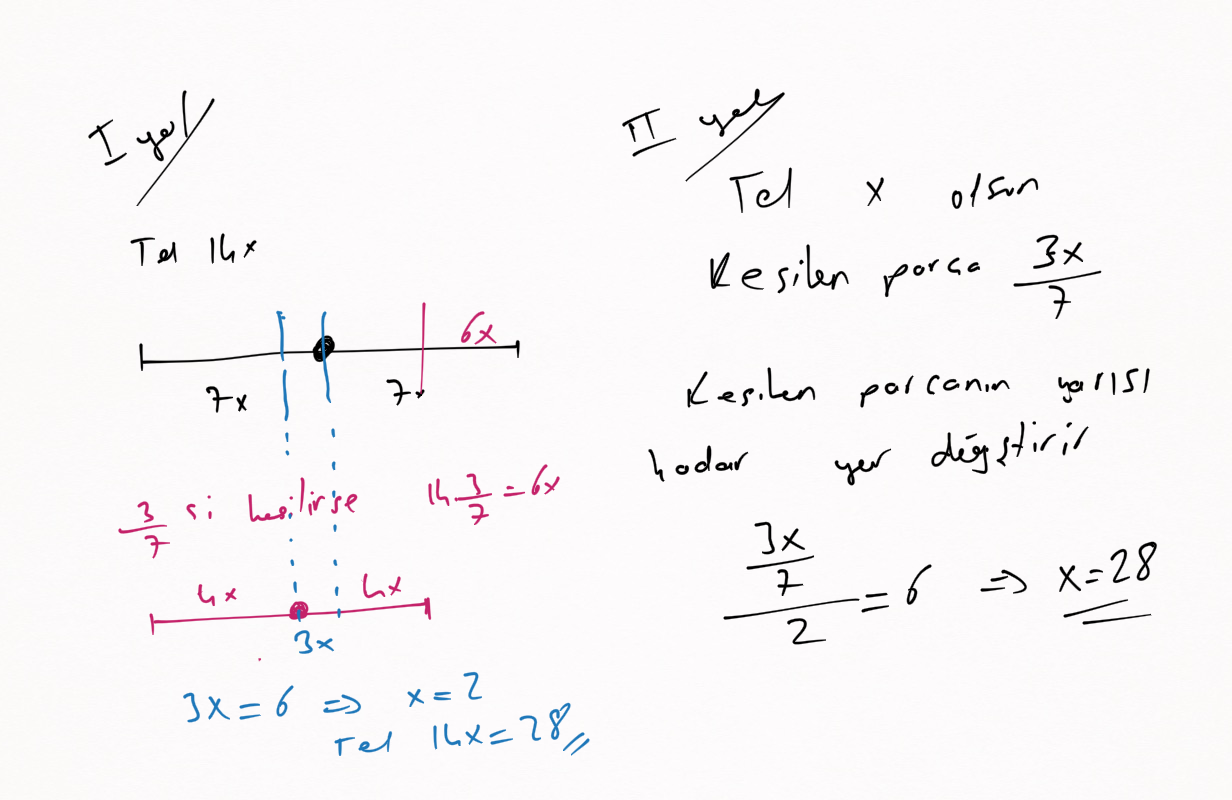 I yol
Tel 14x
6x
7x 7x
3/7 si kesilirse 14 3/7 = 6x
4x 4x
3x
3x = 6 ⇒ x = 2
Tel 14x = 28
II yol
Tel x olsun
Kesilen parça 3x/7
Kesilen parçanın yarısı
kadar yer değiştirir
3x/7/2 = 6 ⇒ x = 28